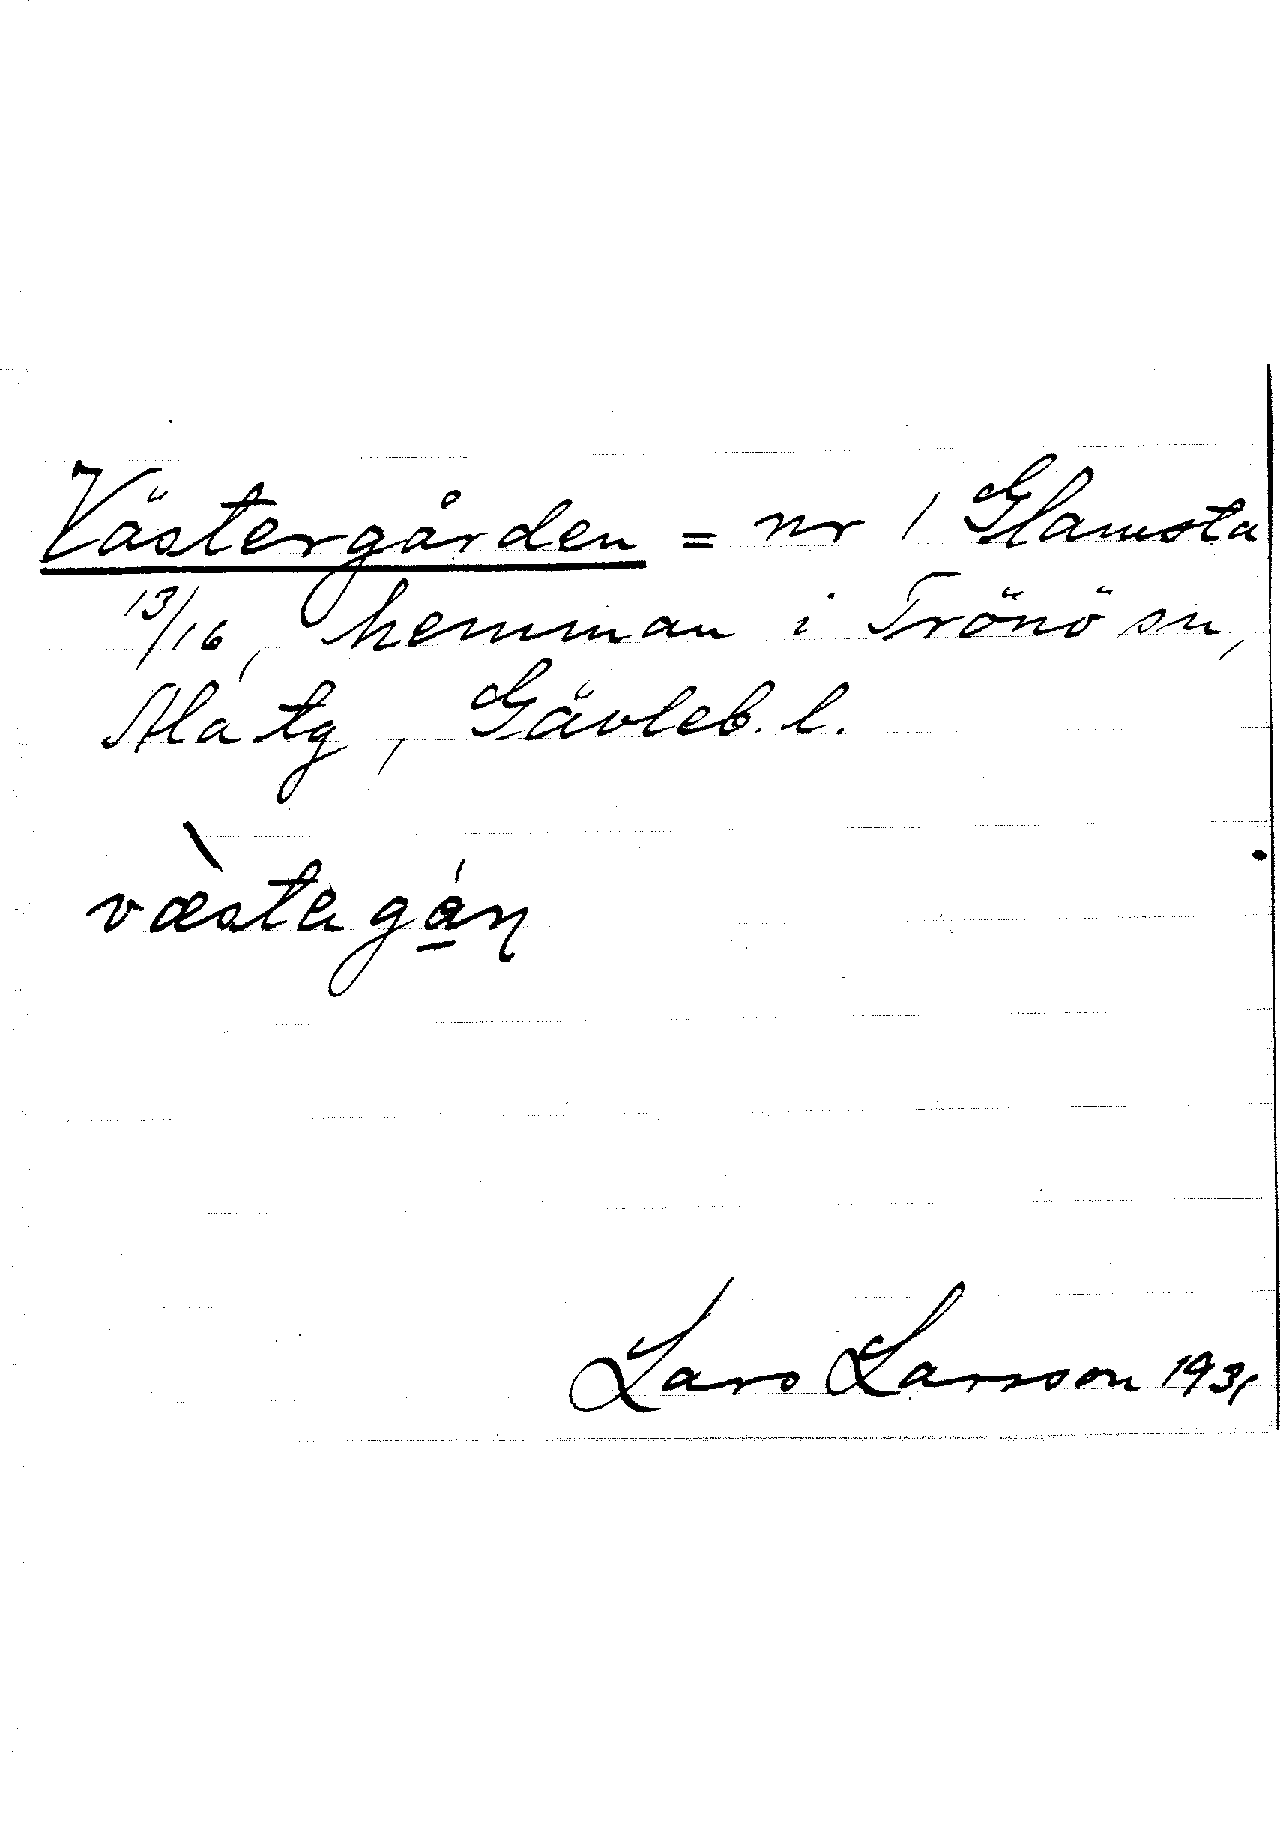 Västergården = nr 1 Glamsta
13/16, hemman i Trönö sn,
Ala tg, Gävleb. l.
væ̀stagá̱ṇ
Lars Larsson 1931